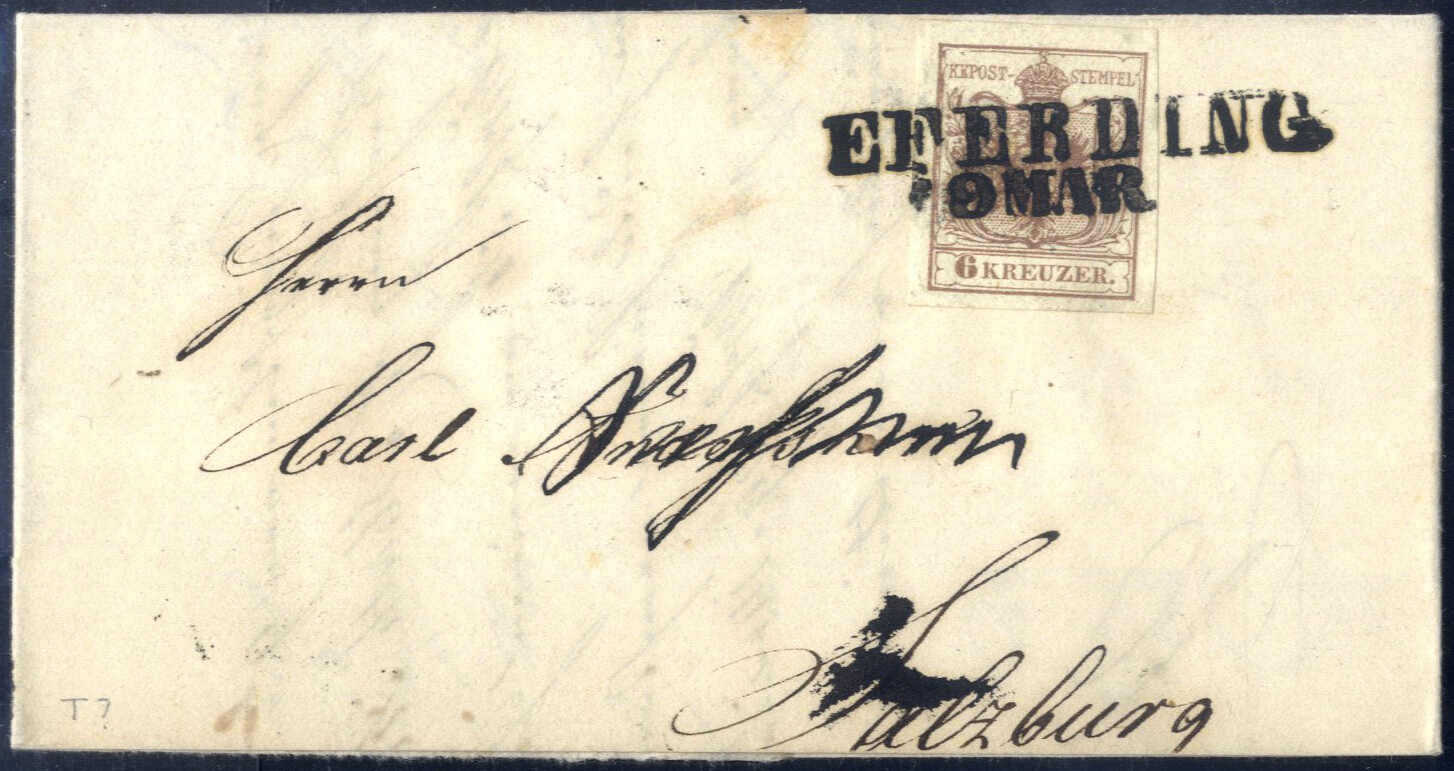 KKPOST-STEMPEL
EFERDING
9 MAR
6 KREUZER.
Herrn
Carl
Salzburg
T?